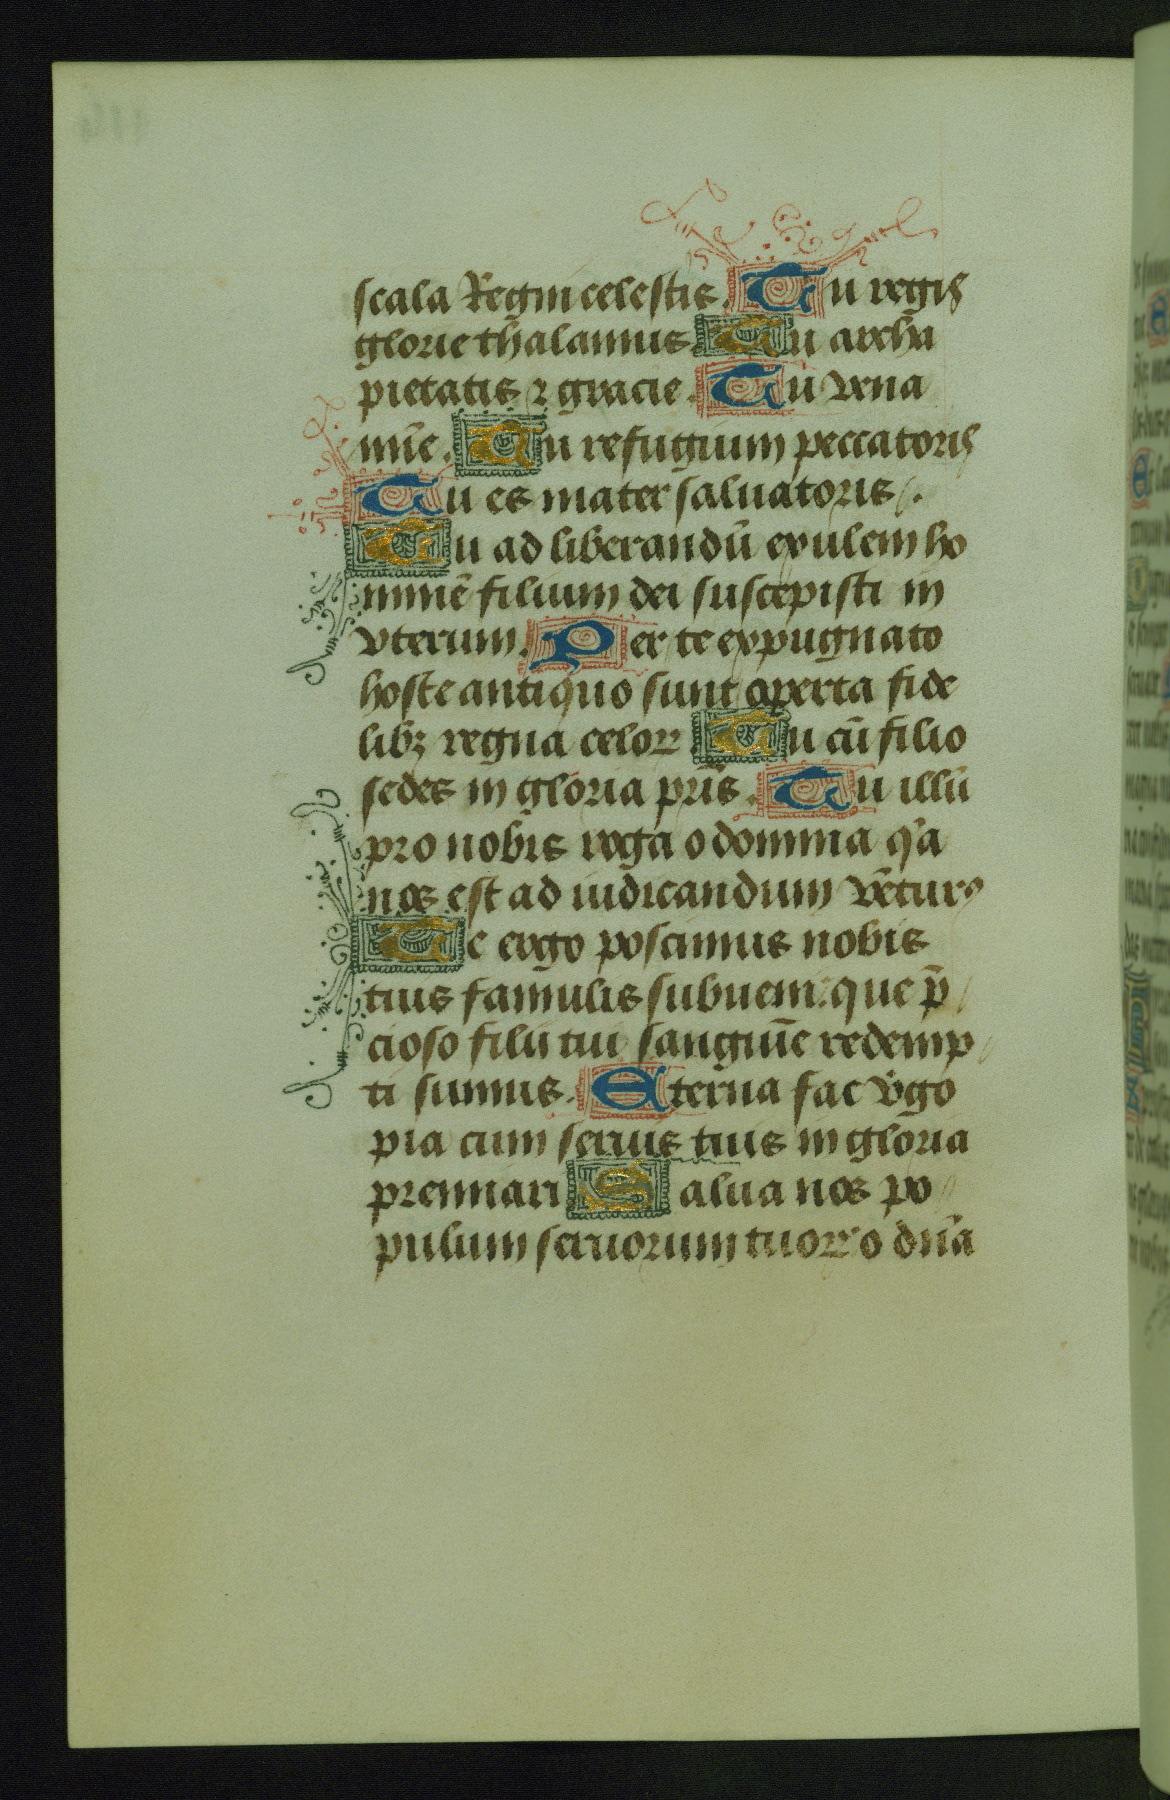 scala Regni celestis. Tu regis
glorie thalamus Tu archa
pietatis ⁊ gracie. Tu vena
mīe. Tu refugium peccatoris
Tu es mater saluatoris.
Tu ad liberandū exulem ho
minē filium dei suscepisti in
vterum. Per te expugnato
hoste antiquo sunt aperta fide
libꝫ regna celoꝝ Tu cū filio
sedes in gloria pr̄is. Tu illū
pro nobis roga o domina q'a
nos est ad iudicandum vētur᷒
Te ergo poscimus nobis
tuis famulis subueni: que p̄
cioso filii tui sanguīe redemp
ti sumus. Eterna fac v̇go
pia cum seruis tuis in gloria
premiari Salua nos po
pulum seruorum tuoꝝ o dn̄a